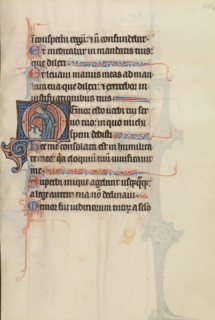 in conspectu regū: & n̄ confundebar.
Et meditabar in mandatis tuis:
que dilexi.
Et levavi manus meas ad man
data tua que dilexi: & exercebor in
iustificationibus tuis.
Memor esto verbi tui ser
vo tuo: in quo michi
spem dedisti.
Hec me consolata est in humilita
te mea: quia eloquiū tuū vivificavit
me.
Superbi inique agebant usq̄quaq̄:
a lege autem tua nō declinavi.
Memor fui iuditiorum tuorū a sclo